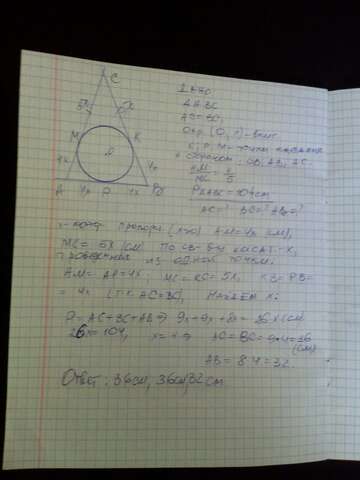 C
5x
5x
M
K
4x
O
4x
A
4x
4x
B
△ABC
AC=BC,
Окр. (O, r) - впис.
K, P, M - точки касания
к сторонам CB, AB, AC.
AM/MC = 4/5
P△ABC = 104см
AC=? BC=? AB=?
пропорц. (x>0) AM=4x (см),
MC = 5x (см) По св-ву касат-х,
проведенных из одной точки.
AM = AP=4x. MC = KC= 5x, KB=PB=
= 4x (т.к. AC=BC, найдем x:
P = AC+BC+AB => 9x+9x+8x = 26x (см
26x = 104, x = 4 => AC=BC=9·4=36
(см)
AB = 8·4 = 32.
Ответ: 36см, 36см, 32см.